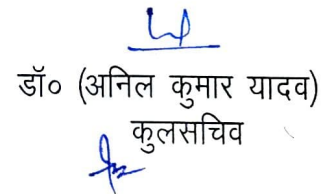 डॉ० (अनिल कुमार यादव)
कुलसचिव